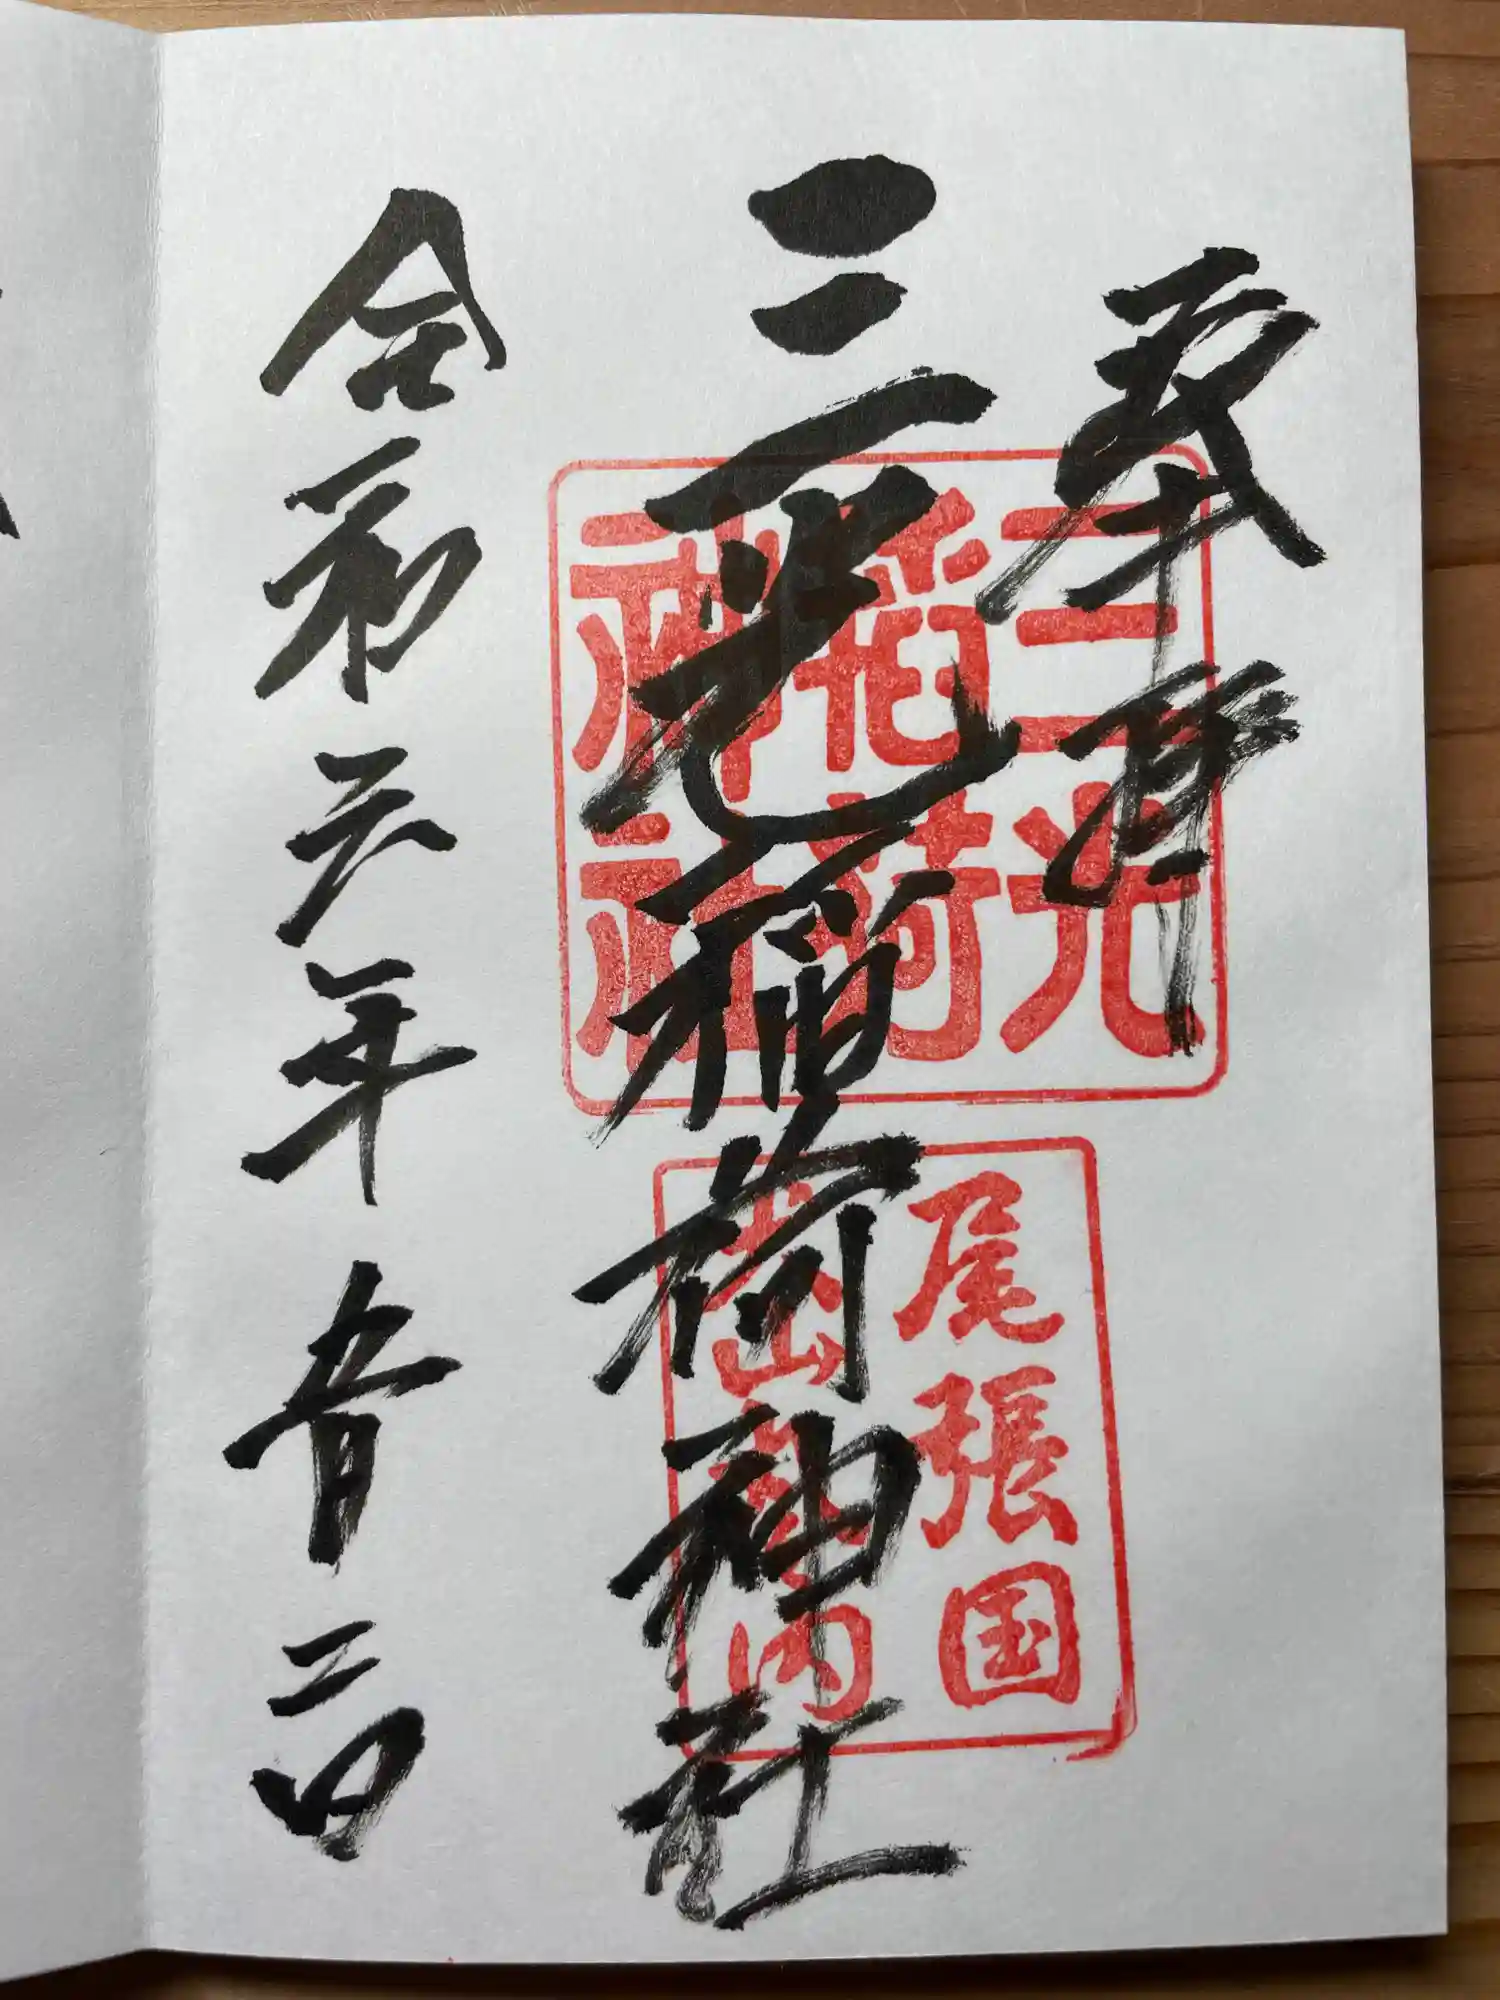 奉拝
三光稲荷神社
三光
稲荷
神社
尾張国
犬山城内
令和六年 五月 二日